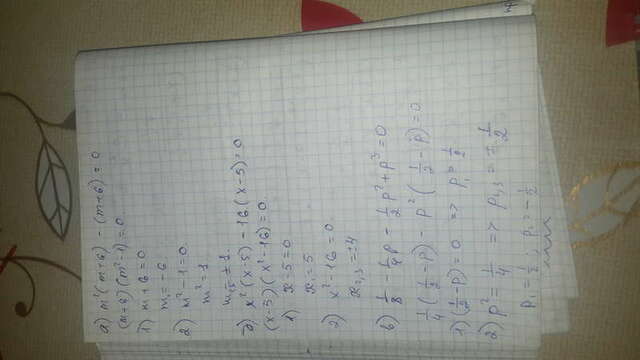 а) m²(m+6) - (m+6) = 0
(m+6)(m²-1) = 0
1) m+6=0
m=-6
2) m²-1=0
m²=1
m=±1
б) x²(x-5) - 16(x-5)=0
(x-5)(x²-16)=0
1) x-5=0
x=5
2) x²-16=0
x₂,₃=±4
в) 1/8 - 1/4p - 1/2p² + p³ = 0
1/4(1/2-p) - p²(1/2-p)=0
1) (1/2-p)=0 => p₁=1/2
2) p²=1/4 => p₂,₃=±1/2
p₁=1/2; p₂=-1/2